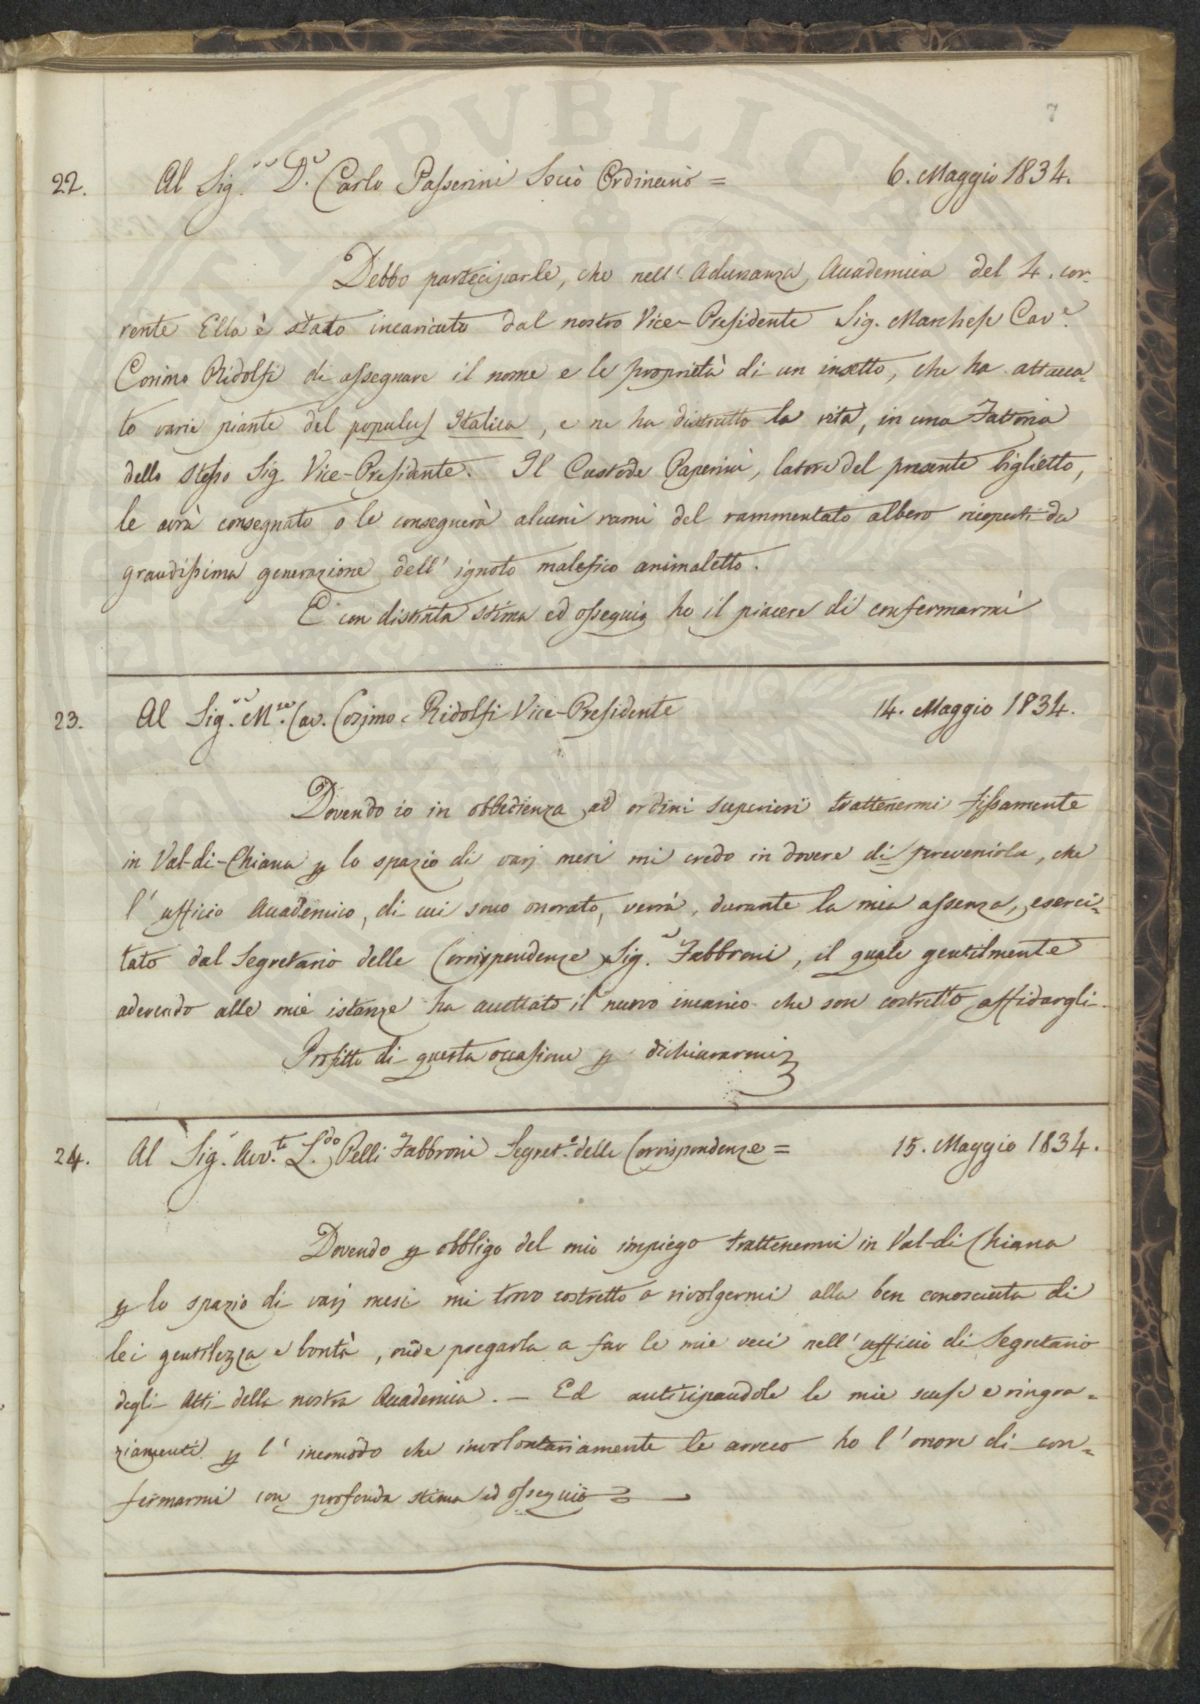 7
22. Al Sig.r D.r Carlo Passerini Socio Ordinario = 6. Maggio 1834.
Debbo parteciparle, che nell' Adunanza Accademica del 4. cor-
rente Ella è stato incaricato dal nostro Vice-Presidente Sig. Marchese Cav.e
Cosimo Ridolfi di assegnare il nome e le proprietà di un insetto, che ha attacca-
to varie piante del populus Italica, e ne ha distrutto la vita, in una Fattoria
dello stesso Sig. Vice-Presidente. Il Custode Paperini, latore del presente biglietto,
le avrà consegnato o le consegnerà alcuni rami del rammentato albero ricoperti da
grandissima generazione dell' ignoto malefico animaletto.
E con distinta stima ed ossequio ho il piacere di confermarmi
23. Al Sig.r M.se Cav. Cosimo Ridolfi Vice-Presidente 14. Maggio 1834.
Dovendo io in obbedienza ad ordini superiori trattenermi fissamente
in Val-di-Chiana p lo spazio di varj mesi mi credo in dovere di prevenirla, che
l' ufficio Accademico, di cui sono onorato, verrà, durante la mia assenza, eserci-
tato dal Segretario delle Corrispondenze Sig.r Fabbroni, il quale gentilmente
aderendo alle mie istanze ha accettato il nuovo incarico che son costretto affidargli.
Profitto di questa occasione p dichiararmi
24. Al Sig.r Avv.to L.do Pelli Fabbroni Segret.o delle Corrispondenze = 15. Maggio 1834.
Dovendo p obbligo del mio impiego trattenermi in Val-di Chiana
p lo spazio di varj mesi mi trovo costretto a rivolgermi alla ben conosciuta di
lei gentilezza e bontà, onde pregarla a far le mie veci nell' ufficio di Segretario
degli Atti della nostra Accademia. - Ed anticipandole le mie scuse e ringra=
ziamenti p l' incomodo che involontariamente le arreco ho l' onore di con=
fermarmi con profonda stima ed ossequio